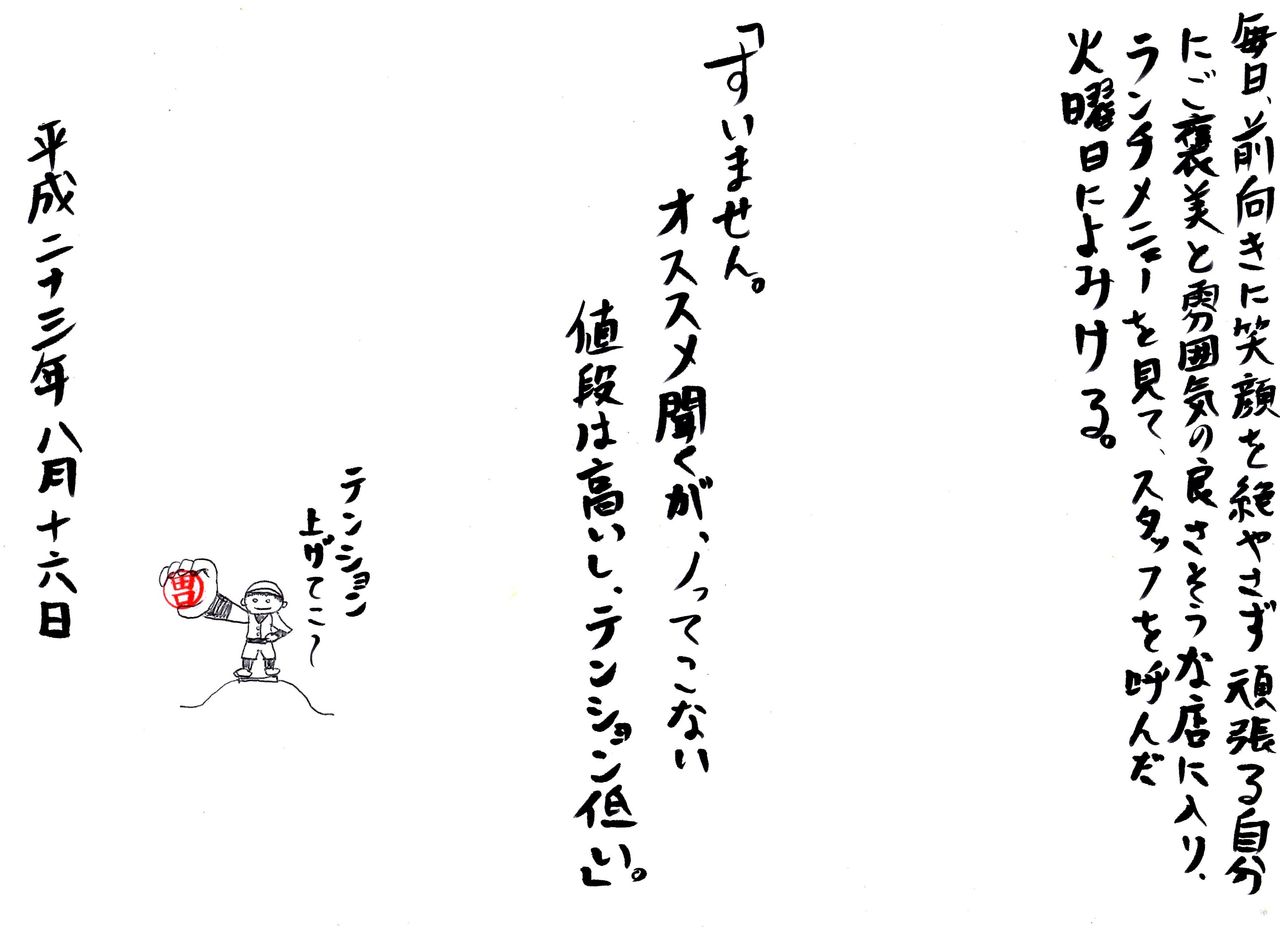 毎日、前向きに笑顔を絶やさず頑張る自分
にご褒美と雰囲気の良さそうな店に入り、
ランチメニューを見て、スタッフを呼んだ
火曜日によみける。
「すいません。
オススメ聞くが、ノってこない
値段は高いし、テンション低い。」
テンション
上げてこ〜
平成二十三年八月十六日